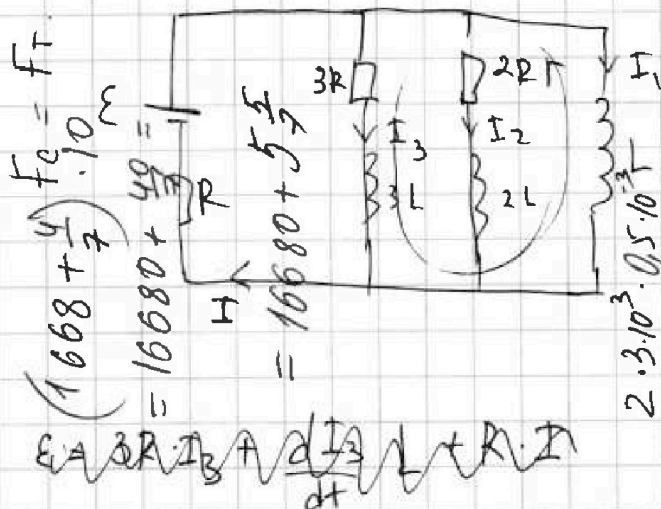 Fc = Fт
(1668 + 4/7) · 10
= 16680 + 40/7 =
= 16680 + 5 5/7
ε
R
I
3R
I₃
3L
2R
I₂
2L
I₁
L
2·3·10³·0,5·10⁻³
ε = 3R·I₃ + dI₃/dt L + R·I